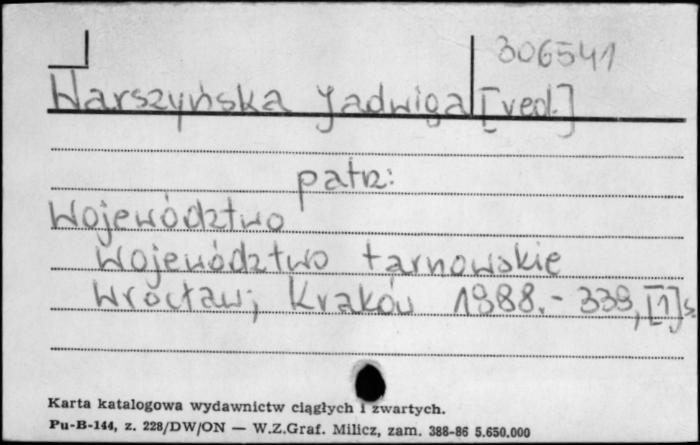 306541
Warszyńska Jadwiga [red.]
patrz:
Województwo
Województwo tarnowskie
Wrocław; Kraków 1988.- 339, [1] s.
Karta katalogowa wydawnictw ciągłych i zwartych.
Pu-B-144, z. 228/DW/ON — W.Z.Graf. Milicz, zam. 388-86 5.650.000